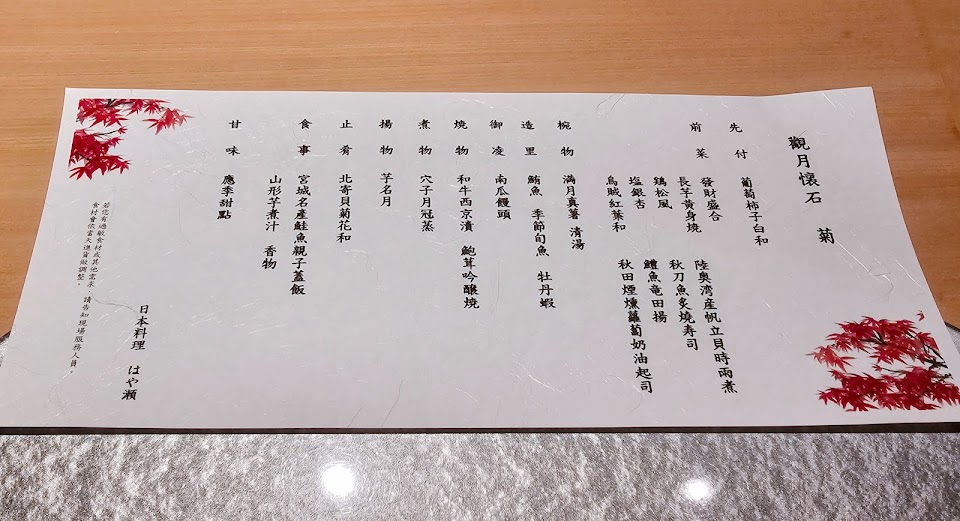 觀月懷石　菊
先付　葡萄柿子白和
前菜　發財盛合　陸奥湾産帆立貝時雨煮
長芋黄身焼　秋刀魚炙燒寿司
鶏松風　鱧魚竜田揚
塩銀杏　秋田煙燻蘿蔔奶油起司
烏賊紅葉和
椀物　滿月真薯 清湯
造里　鮪魚　季節旬魚　牡丹蝦
御凌　南瓜饅頭
燒物　和牛西京漬　鮑茸吟釀燒
煮物　穴子月冠蒸
揚物　芋名月
止肴　北寄貝菊花和
食事　宮城名產鮭魚親子蓋飯
山形芋煮汁　香物
甘味　應季甜點
日本料理　はや瀬
若您有過敏食材或其他需求，請告知現場服務人員。
食材會依當天進貨做調整。